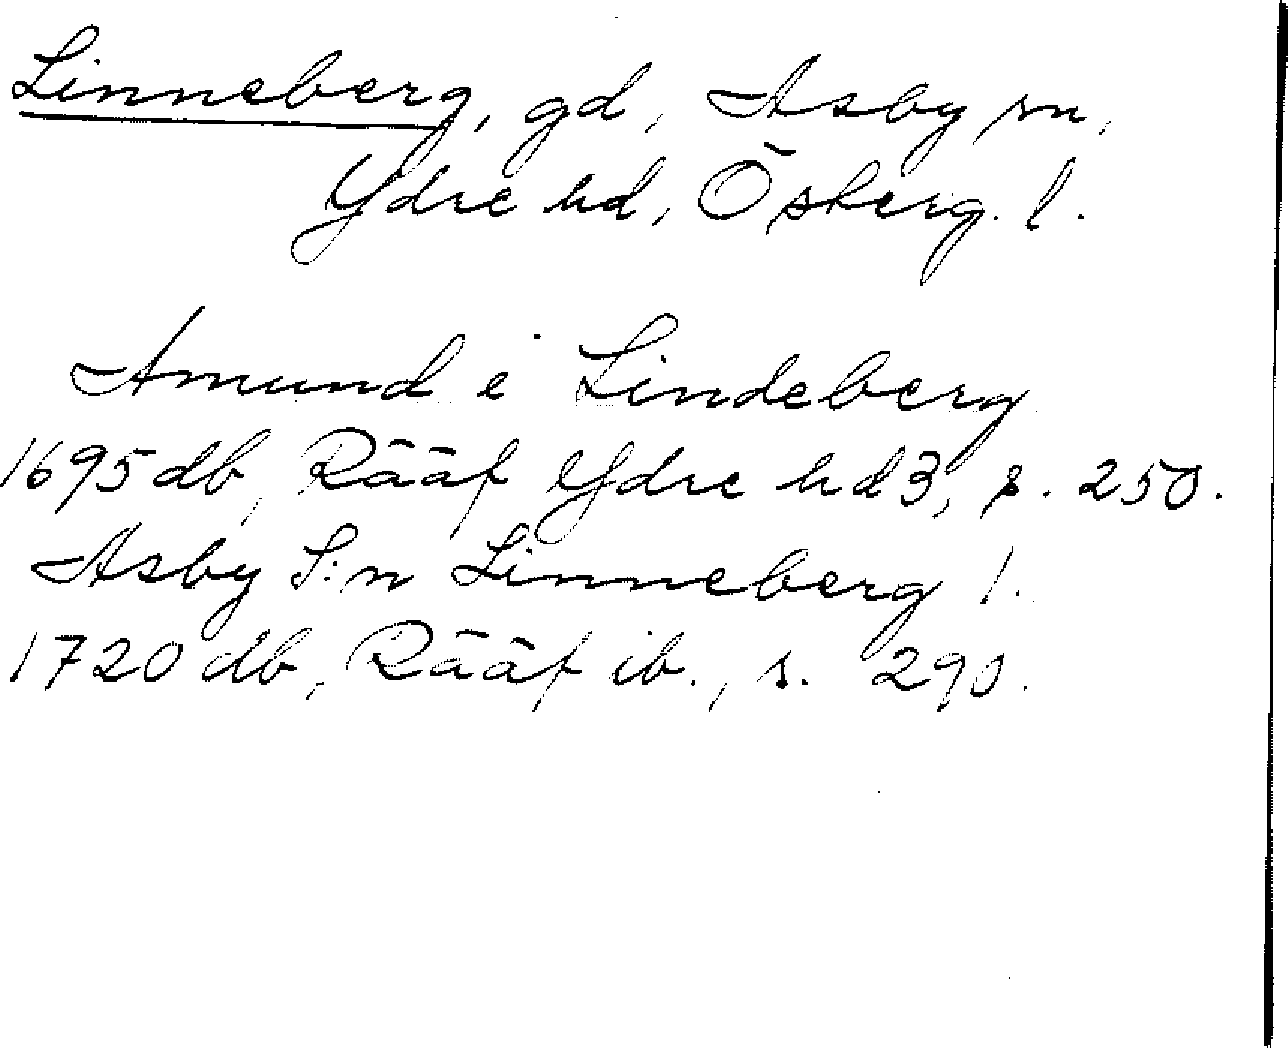 Linneberg, gd, Asby sn,
Ydre hd, Österg. l.
Amund i Lindeberg
1695 db, Rääf Ydre hd 3, s. 250.
Asby S:n Linneberg 1.
1720 db, Rääf ib., s. 290.